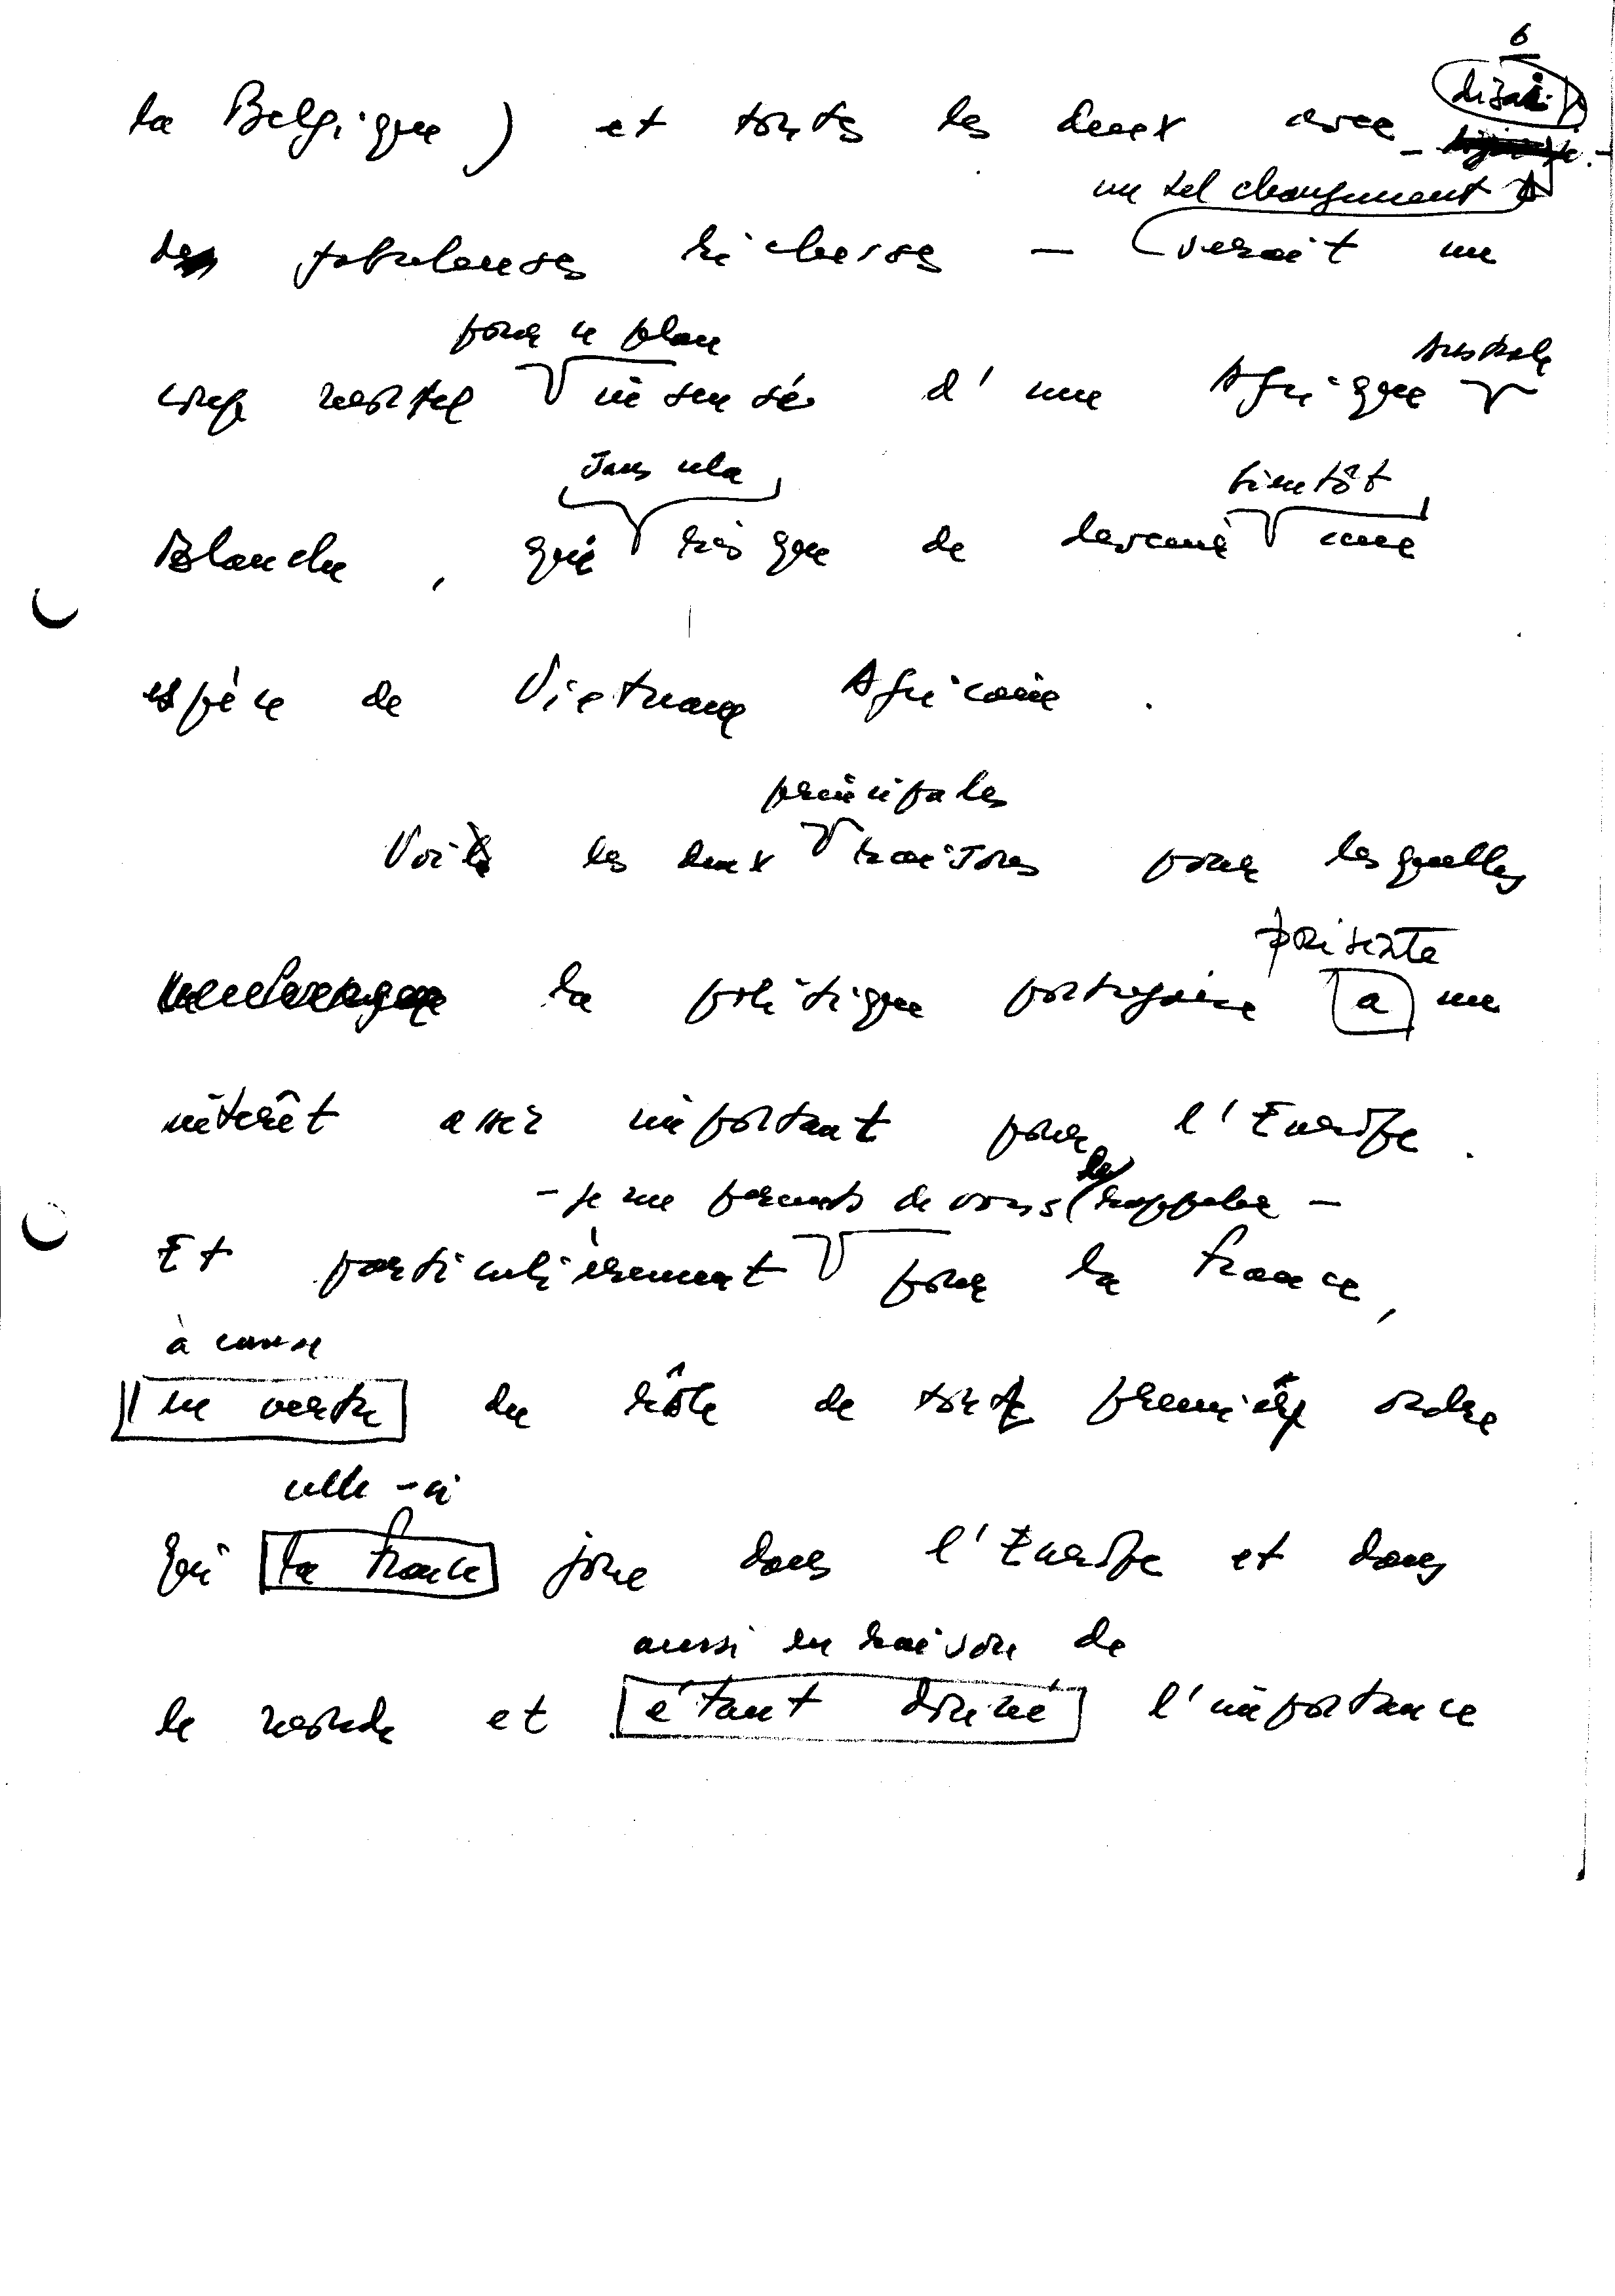 6
disais
la Belgique) et toutes les deux avec
un tel changement
de fabuleuses richesses — serait un
pour ce plan
Australe
coup mortel insensé d'une Afrique
sans cela
bientôt
Blanche, qui risque de devenir une
espèce de Vietnam Africain.
principales
Voilà les deux raisons pour lesquelles
présente
la politique portugaise a un
intérêt assez important pour l'Europe.
le
- je me permets de vous rappeler -
Et particulièrement pour la France,
à cause
en vertu du rôle de tout premier ordre
celle-ci
qui la France joue dans l'Europe et dans
aussi en raison de
le monde et étant donné l'importance